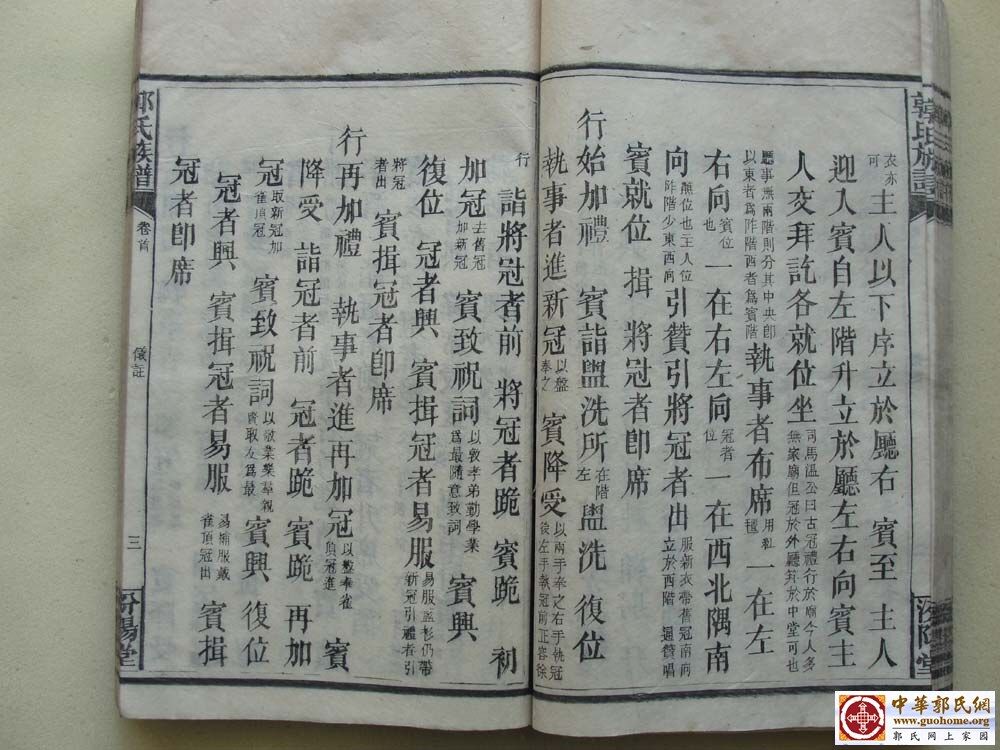 郭氏族譜
汾陽堂
衣亦可 主人以下序立於廳右 賓至 主人
迎入賓自左階升立於廳左右向賓主
人交拜訖各就位坐 司馬溫公曰古冠禮行於廟今人多無家廟但冠於外廳笄於中堂可也
廳事無兩階則分其中央卽以東者爲阼階西者爲賓階 執事者布席 用紅氊 一在左
右向 賓位也 一在右左向 冠者位 一在西北隅南
向 醮位也主人位阼階少東西向 引贊引將冠者出 服新衣帶舊冠南向立於西階 通贊唱
賓就位 揖 將冠者卽席
行始加禮 賓詣盥洗所 在階左 盥洗 復位
執事者進新冠 以盤奉之 賓降受 以兩手奉之右手執冠後左手執冠前正容徐
行 詣將冠者前 將冠者跪 賓跪 初
加冠 去舊冠加新冠 賓致祝詞 以敦孝弟勤學業爲最隨意致詞 賓興
復位 冠者興 賓揖冠者易服 易服藍衫仍帶新冠引禮者引
將冠者出 賓揖冠者卽席
行再加禮 執事者進再加冠 以盤奉雀頂冠進 賓
降受 詣冠者前 冠者跪 賓跪 再加
冠 取新冠加雀頂冠 賓致祝詞 以敬業樂羣親賢取友爲最 賓興 復位
冠者興 賓揖冠者易服 易襴服戴雀頂冠出 賓揖
冠者卽席
郭氏族譜
卷首
儀註
三
汾陽堂
中華郭氏網
www.guohome.org
郭氏网上家園